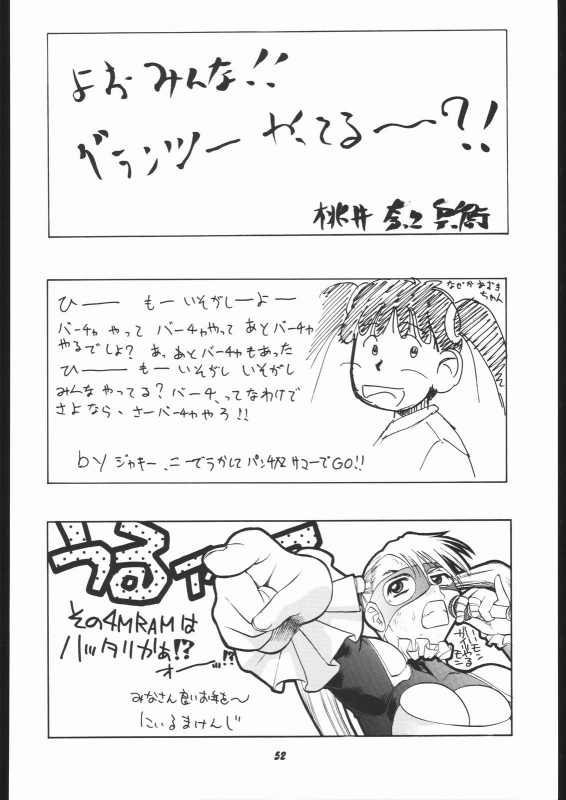 よお みんな!!
グランツー やってる〜?!
桃井
ひーー もー いそがしーよー
バーチャ やって バーチャやって あとバーチャ
やるでしょ? あっ、あとバーチャもあった
ひーー もー いそがし いそがし
みんな やってる? バーチ、ってなわけで
さよなら、さーバーチャやろ!!
by ジャキー
サマコーでGO!!
ちゃん
その4MRAMは
ハッタリかぁ!?
オーーッ!?
みなさん良いお年を〜
にぃるまけんじ
52